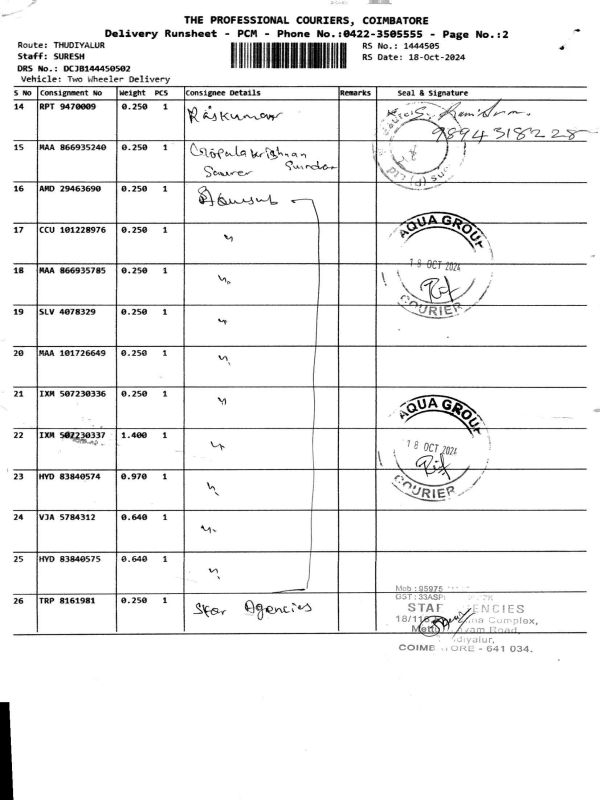 THE PROFESSIONAL COURIERS, COIMBATORE
Delivery Runsheet - PCM - Phone No.:0422-3505555 - Page No.:2
Route: THUDIYALUR
RS No.: 1444505
Staff: SURESH
RS Date: 18-Oct-2024
DRS No.: DCJB144450502
Vehicle: Two Wheeler Delivery
S No Consignment No Weight PCS Consignee Details Remarks Seal & Signature
14 RPT 9470009 0.250 1 Raskumar
9894318228
15 MAA 866935240 0.250 1 Gopalakrishnan
16 AMD 29463690 0.250 1
17 CCU 101228976 0.250 1 "
AQUA GROUP
18 OCT 2024
COURIER
18 MAA 866935785 0.250 1 "
19 SLV 4078329 0.250 1 "
20 MAA 101726649 0.250 1 "
21 IXM 507230336 0.250 1 "
AQUA GROUP
18 OCT 2024
COURIER
22 IXM 507230337 1.400 1 "
23 HYD 83840574 0.970 1 "
24 VJA 5784312 0.640 1 "
25 HYD 83840575 0.640 1 "
26 TRP 8161981 0.250 1 Star Agencies
Mob : 95975
GST : 33ASP
STAR ENCIES
18/116 Complex,
Road,
diyalur,
COIMB ORE - 641 034.